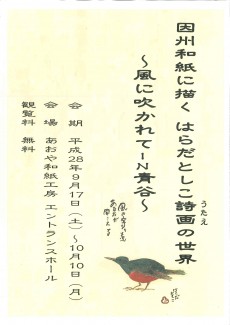 因州和紙に描く はらだとしこ詩画の世界
うたえ
～風に吹かれてIN青谷～
会 期 平成28年9月17日（土）～10月10日（月）
会 場 あおや和紙工房 エントランスホール
観覧料 無料